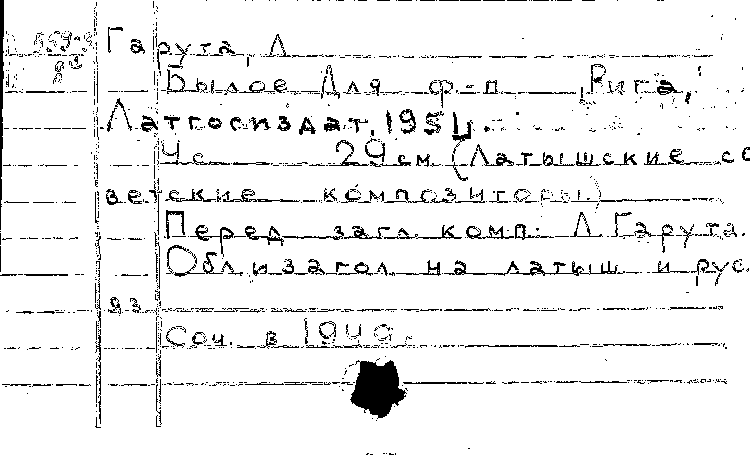 559-9
Гарута, Л
8°
Былое Для ф-п Рига,
Латгосиздат, 1954.
4с 29 см (Латышские со
ветские композиторы)
Перед загл. комп. Л. Гарута.
Обл. и загол на латыш и рус.
93
Соч. в 1949.